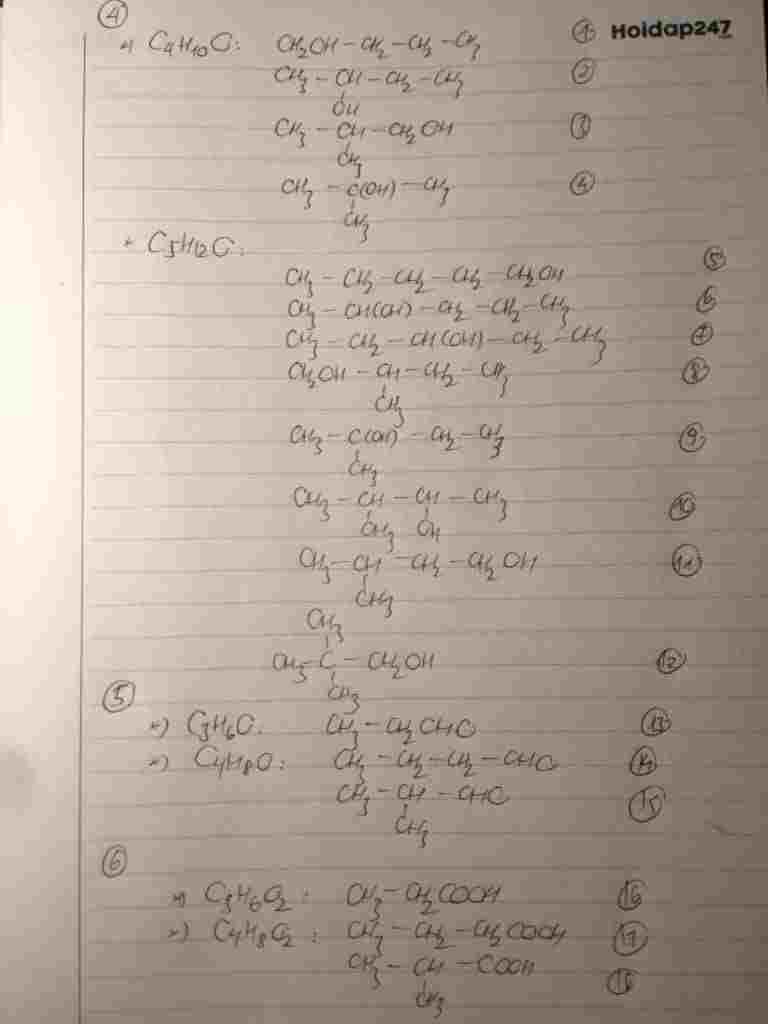 ④
*) C4H10O: CH2OH - CH2 - CH2 - CH3 ① Hoidap247
CH3 - CH - CH2 - CH3 ②
OH
CH3 - CH - CH2OH ③
CH3
CH3 - C(OH) - CH3 ④
CH3
* C5H12O:
CH3 - CH2 - CH2 - CH2 - CH2OH ⑤
CH3 - CH(OH) - CH2 - CH2 - CH3 ⑥
CH3 - CH2 - CH(OH) - CH2 - CH3 ⑦
CH2OH - CH - CH2 - CH3 ⑧
CH3
CH3 - C(OH) - CH2 - CH3 ⑨
CH3
CH3 - CH - CH - CH3 ⑩
CH3 OH
CH3 - CH - CH2 - CH2OH ⑪
CH3
CH3
CH3 - C - CH2OH ⑫
CH3
⑤
*) C3H6O: CH3 - CH2CHO ⑬
*) C4H8O: CH3 - CH2 - CH2 - CHO ⑭
CH3 - CH - CHO ⑮
CH3
⑥
*) C3H6O2: CH3 - CH2COOH ⑯
*) C4H8O2: CH3 - CH2 - CH2COOH ⑰
CH3 - CH - COOH ⑱
CH3